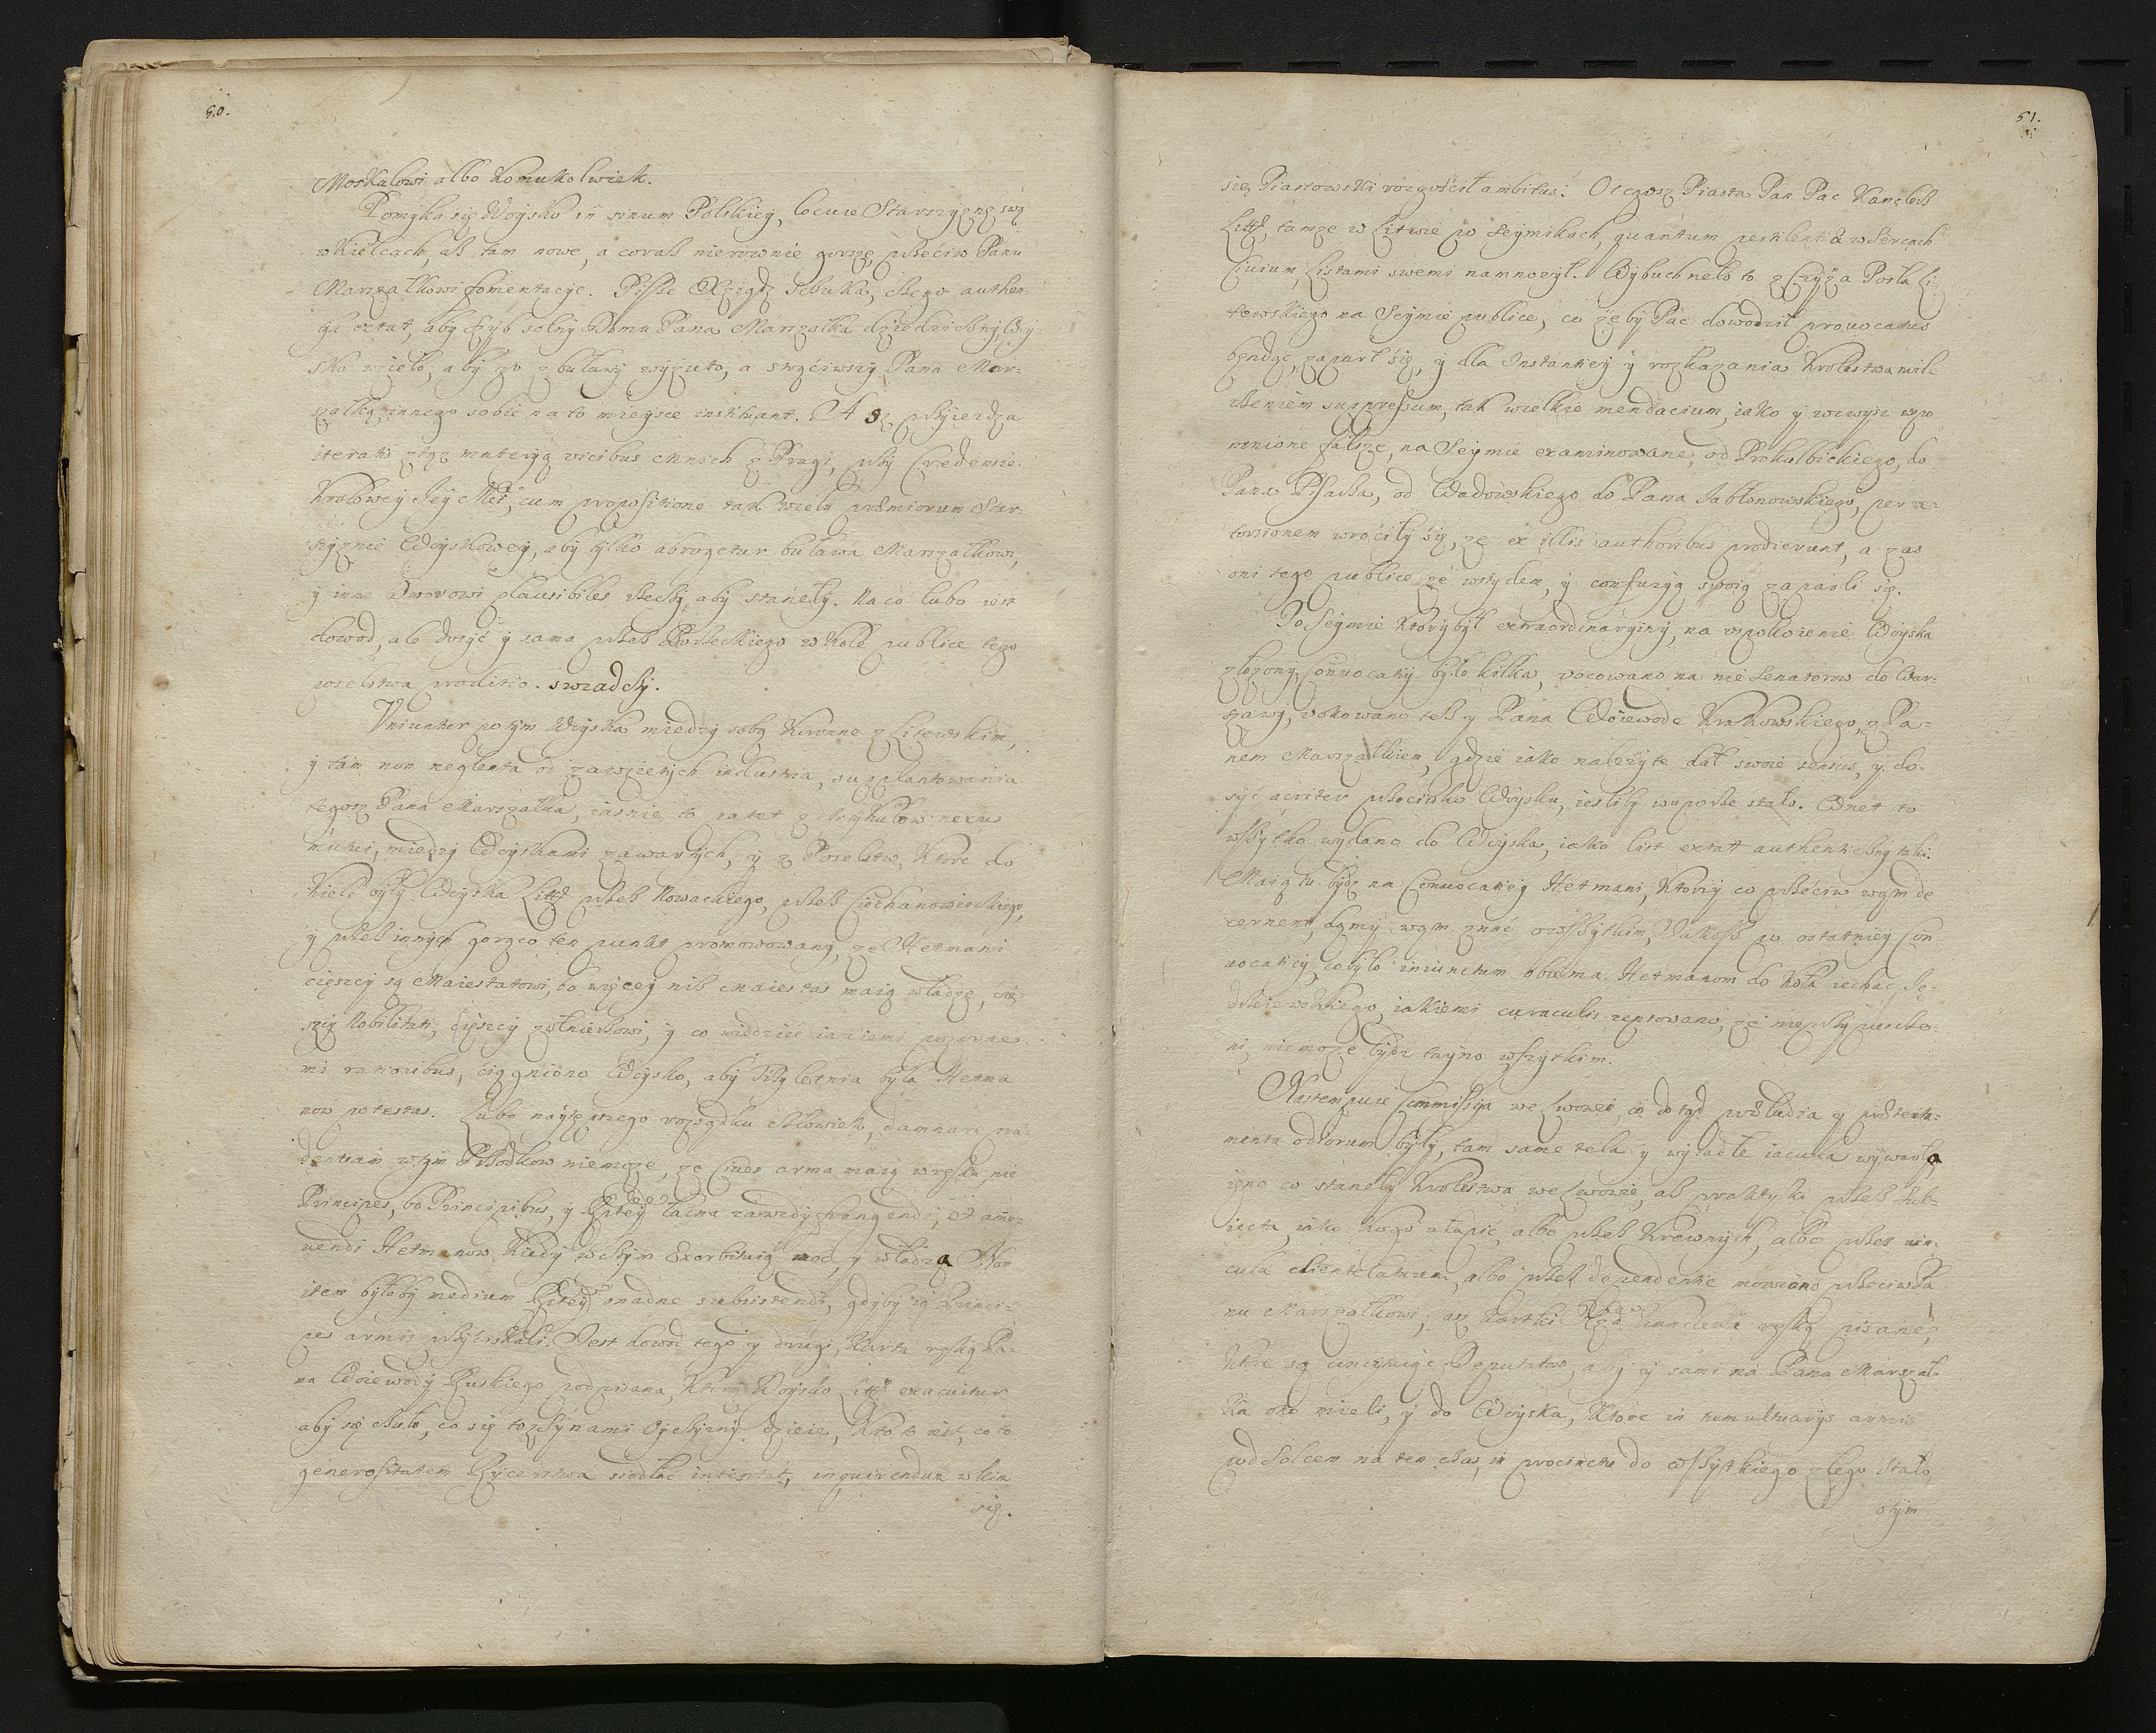 50.
Moskalowi albo komukolwiek.
Pomyka się Woysko in sinum Polskiey, locuie Starszyznę swą
w Kielcach, aż tam nowe, a coraz nierownie gorsze, przeciw Panu
Marszałkowi fomentacye. Pisze Xiądz Sebuka, czego authen-
extat, aby Szyb solny Domu Pana Marszałka dziedziczny Woy-
sko wzieło, aby go z buławy wyzuto, a zwąciwszy Pana Mar-
szałka, innego sobie na to mieysce instituant. A z przyiezdza
iteratis z tąz materyą vicibus Mnich z Pragi, przy Credensie
Krolowey Jey Mci, cum propositione tak wielu præmiorum Star-
szyznie Woyskowey, aby tylko abrogetur buława Marszałkowi,
y inne Dworowi plausibiles rzeczy, aby staneły. Na co lubo iest
dowod, ale dosyć y sama przez Borzeckiego w Kole publice tego
poselstwa proditio. swiadczy.
Uniuntur potym Woyska miedzy sobą Koronne z Litewskim,
y tam non neglecta od zawzietych industria, supplantowania
tegosz Pana Marszałka, iasnie to patet z Artykułow nexus
mutui, miedzy Woyskami zawartych, y z Poselstw, ktore do
Kielc były Woyska Litt przez Nowackiego, przez Ciechanowieckiego,
y przez innych gorąco ten punkt promowowany, ze Hetmani
cięszcy są Maiestatowi, bo więcey niż Maiestas maią władzę, cię-
szcy Nobilitati, cięszcy zołnierzowi, y co wiedzieć iakiemi pozorne-
mi rationibus, ciągniono Woysko, aby trzyletnia była Hetma
now potestas. Lubo naytępszego rozsądku człowiek, damnare pru-
dentiam w tym Przodkow niemoze, ze Cives arma maią w ręku nie
Principes, bo Principibus, y Rptey łacna zawzdy frangendi, et amo-
vendi Hetmanow kiedy w czym Exorbituią moc, y władza Non
item byłoby medium Rptey snadne subsistendi, gdyby ią Princi-
pes armis przyciskali. Jest dowod tego y drugi, Karta ręką Pa-
na Woiewody Ruskiego podpisana, ktorą Woysko Litt exacuitur
aby się czuło, co się to z Synami Oyczyzny dzieie, Kto to iest, co to
generositatem Rycerstwa siodłać intentat, inquirendum w kim
się.
51.
się Piastowski rozgościł ambitus. O tegosz Piasta Pan Pac Kanclerz
Litt, tamze w Litwie po Seymikach, quantum pestilentiæ w Sercach
Civium, Listami swemi namnozył. Wybuchneło to z Czyza Posła Li-
tewskiego na Seymie publice, co zeby Pac dowodził provocatus
będąc, zaparł się, y dla Instantiey y rozkazania Krolestwa mil-
czeniem suppressum, tak wielkie mendacium, iako y wzwysz wspo
mnione fałsze, na Seymie examinowane, od Prokulbickiego, do
Pana Pisarza, od Wodowskiego do Pana Jabłonowskiego, per re-
torsionem wrociły się, ze ex illis authoribus prodierunt, a zas
oni tego publice ze wstydem, y confuzyą swoią zaparli się.
Po Seymie ktory był extraordinaryiny, na uspokoienie Woyska
złozony, Convocatiy było kilka, vocowano na nie Senatorow do War-
szawy, vokowano tesz y Pana Woiewode Krakowskiego, z Pa-
nem Marszałkiem, gdzie iako nalezyte dał swoie sensus, y do-
syć acriter przeciwko Woysku, iesliby w uporze stało. Wnet to
wszytko wydano do Woyska, iako list extat authentyczny taki.
Maią tu bydz na Convocatiey Hetmani, ktorzy co przeciw wgm de
cernent, damy wgm znać o wszytkim, Jakosz po ostatniey Con-
vocatiey, co było iniunctum obiema Hetmanom do Koła iechać, Ję-
drzeiewskiego, iakiemi cuniculis zepsowano, ze nieprzypuszcze-
ni, niemoze bydz tayno wszytkim.
Nastempuie Commissya we Lwowie, co dotąd præludia y prætenta-
menta odiorum były, tam same tela y wyiadłe iacula wywarła
iedno co staneły Krolestwa we Lwowie, aż praktyka przez Sub-
iecta, iako kogo ułapić, albo przez Krewnych, albo przez vin-
cula clientelarum, albo przez dependentie mowiono przeciw Pa
nu Marszałkowi, az kartki Xdza Kanclerza ręką pisane,
ktore są uncykuiąc Deputatow, aby y sami na Pana Marszał-
ka oko mieli, y do Woyska, ktore in tumultuarys armis
pod Solcem na ten czas, in procinctu do wszytkiego złego stało,
otym